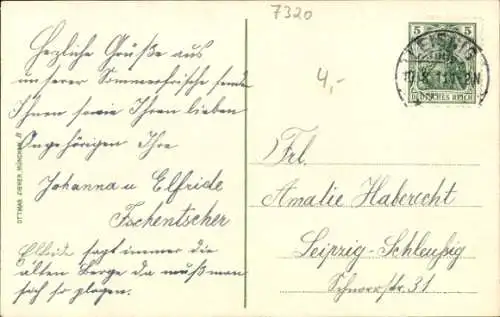 7320
Herzliche Grüße aus
unserer Sommerfrische sende
Ihnen sowie Ihren lieben
Angehörigen Ihre
Johanna u Elfride
Fschentscher
Elfride sagt immer die
alten Berge da muß man
sich so plagen.
OTTMAR ZIEHER, MÜNCHEN
4,-
5 5
DEUTSCHES REICH
Frl.
Amalie Haberecht
Leipzig-Schleußig
Schnorrstr. 31